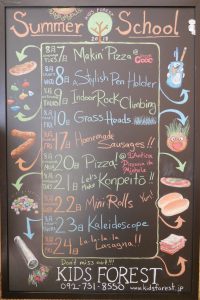 KIDS FOREST
Summer School
8月7日 Makin' Pizza @ GOOC
8月8日 Stylish Pen Holder
8月9日 Indoor Rock Climbing
8月10日 Grass Heads
8月17日 Homemade Sausages!!
8月20日 Pizza! @ L'Antica Pizzeria da Michele
8月21日 Let's Make Konpeito!!
8月22日 Mini Rolls Yum!
8月23日 Kaleidoscope
8月24日 La-la-la-la Lasagna!!
Don't miss out!!!
KIDS FOREST
092-731-8550 www.kidsforest.jp